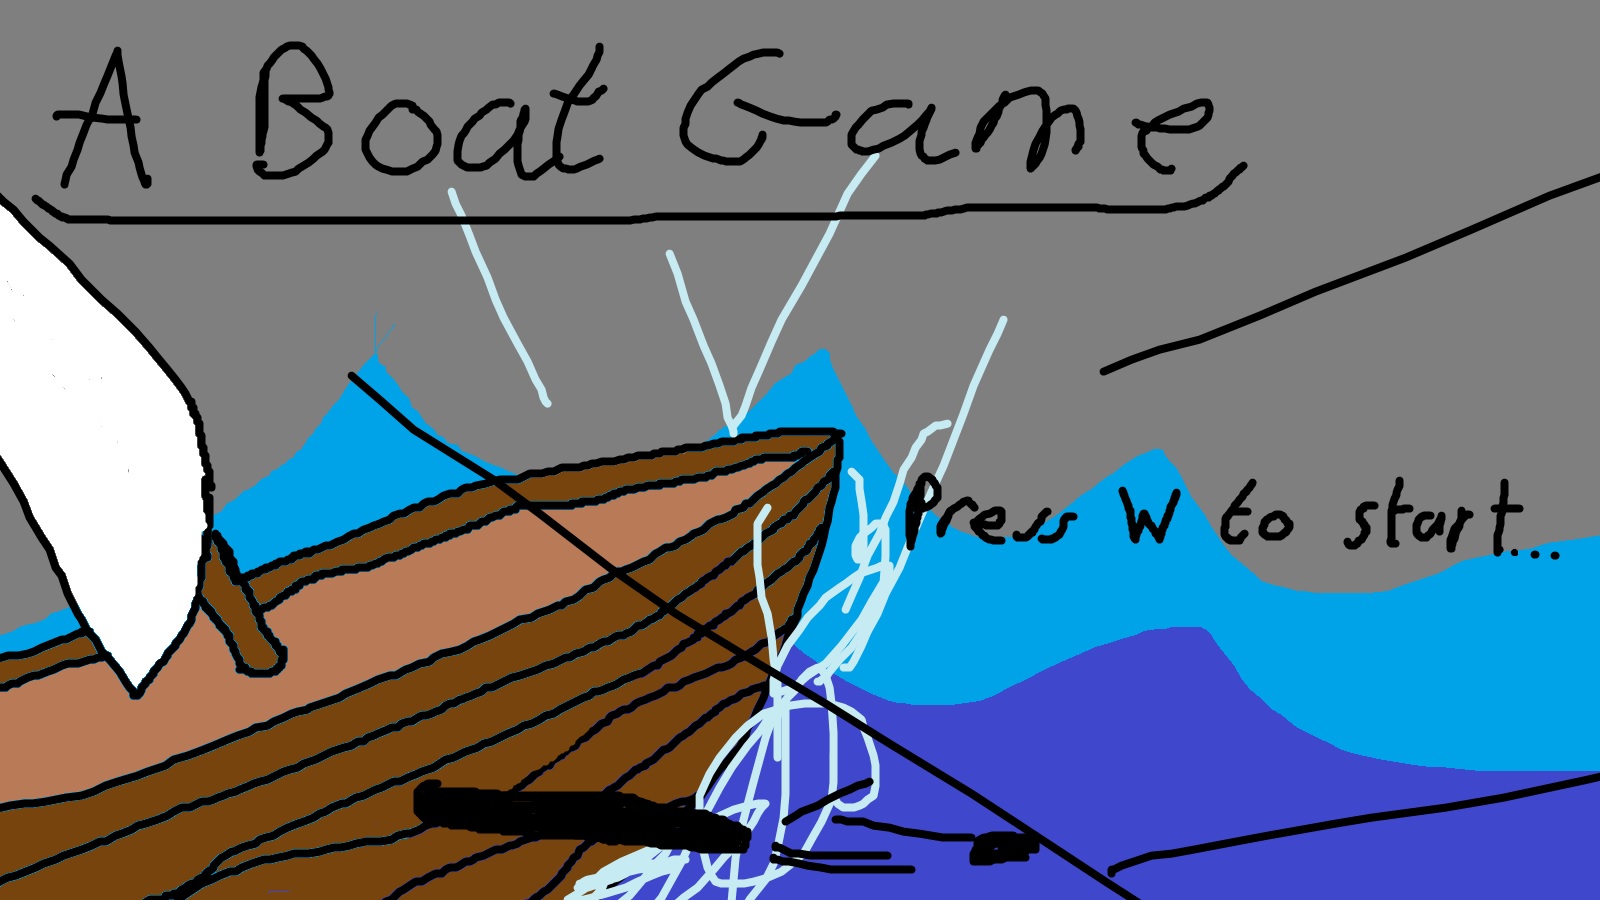 A Boat Game
Press W to start...